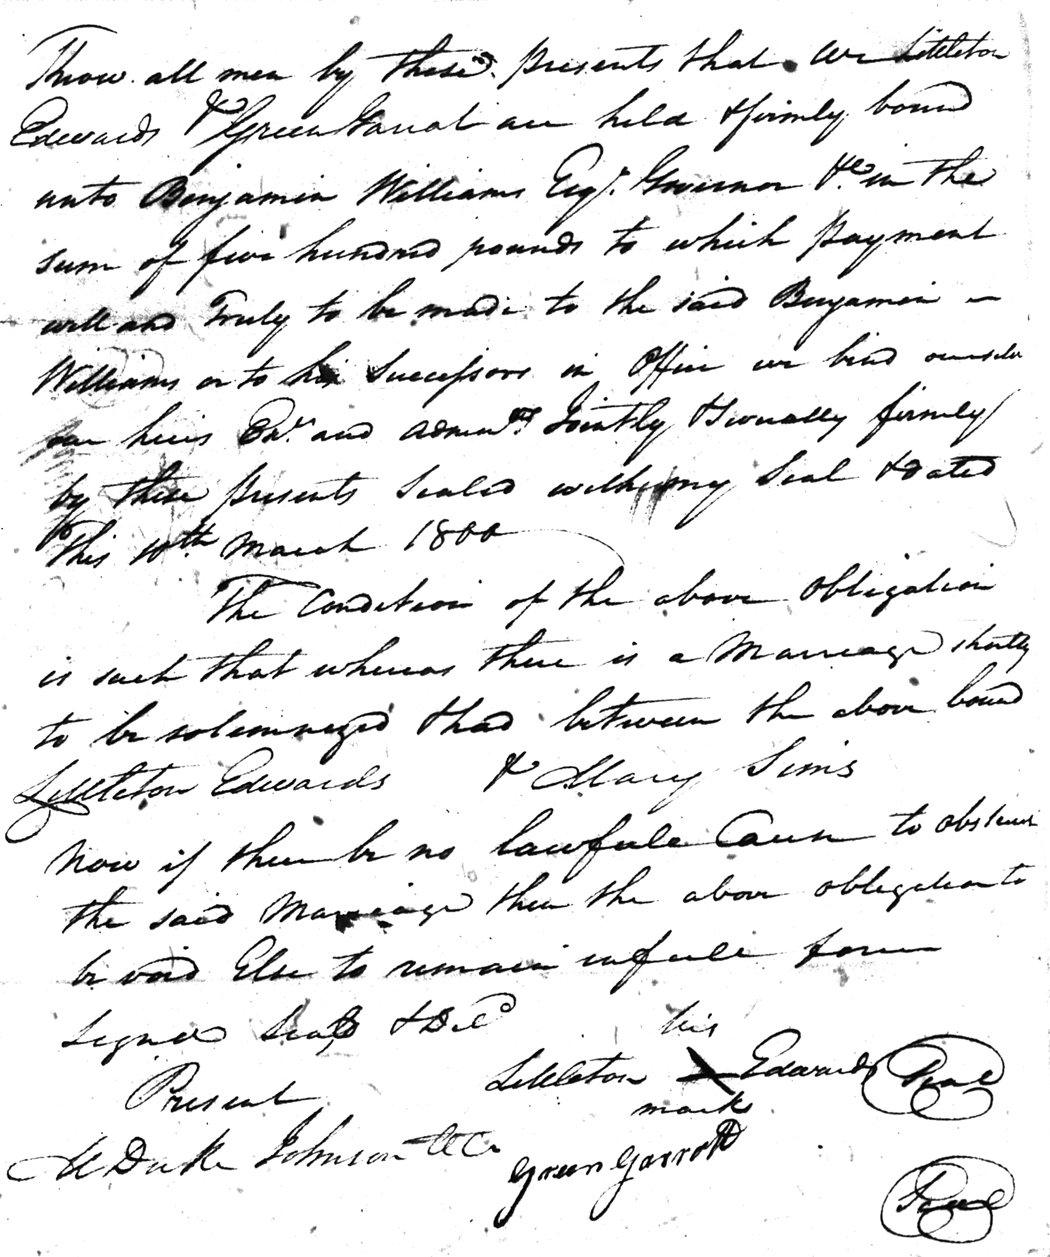 Know all men by these presents that we Littleton
Edwards & Green Garrot are held & firmly bound
unto Benjamin Williams Esqr. Governor &c in the
sum of five hundred pounds to which payment
well and Truly to be made to the said Benjamin
Williams or to his Successors in Office we bind ourselves
our heirs Exrs and Admrs Jointly & Severally firmly
by these presents Sealed with my Seal & Dated
This 10th March 1800
The Condition of the above Obligation
is such that whereas there is a Marriage shortly
to be solemnized & had between the above bound
Littleton Edwards & Mary Sims
Now if there be no lawfule Cause to obstruct
the said Marriage then the above obligation to
be void Else to remain in fule force
Signed Seald & Deld
his
Present Littleton X Edwards Seal
mark
M Duke Johnson CCC Green Garrott
Seal